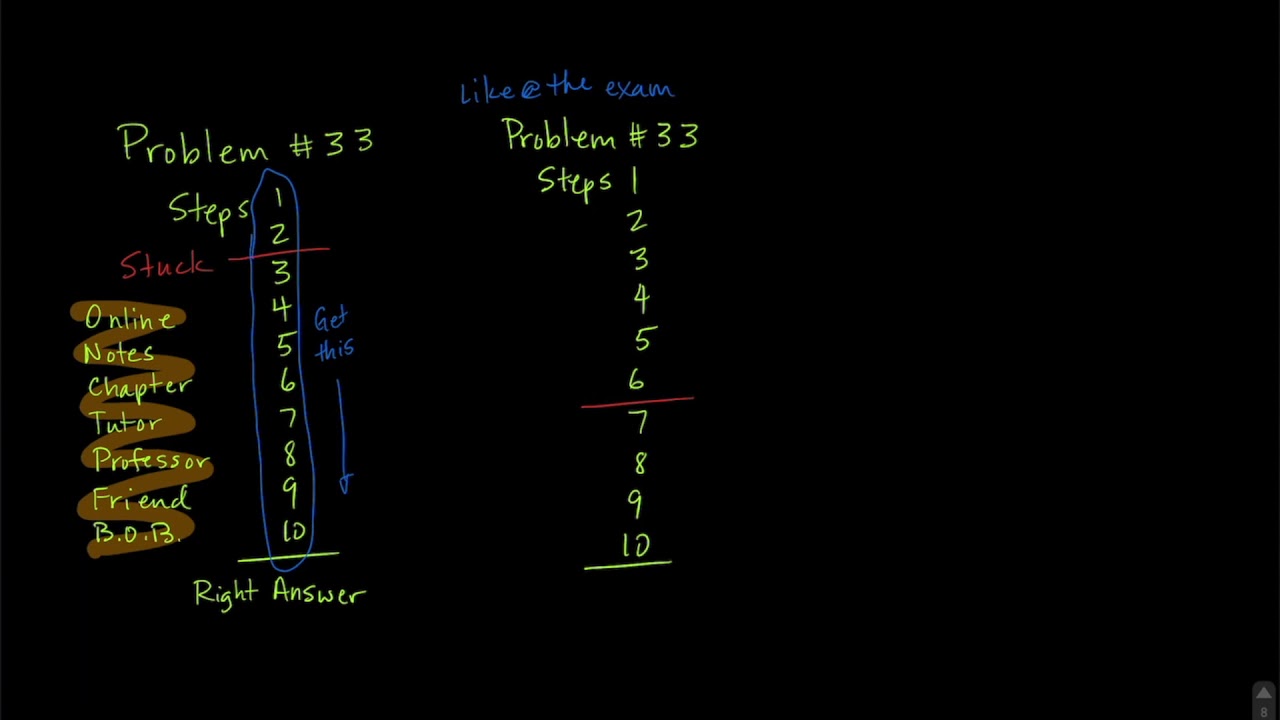 Problem #33
Steps 1
2
Stuck
3
4
5
6
7
8
9
10
Online
Notes
Chapter
Tutor
Professor
Friend
B.O.B.
Get
this
Right Answer
Like@the exam
Problem #33
Steps 1
2
3
4
5
6
7
8
9
10
8